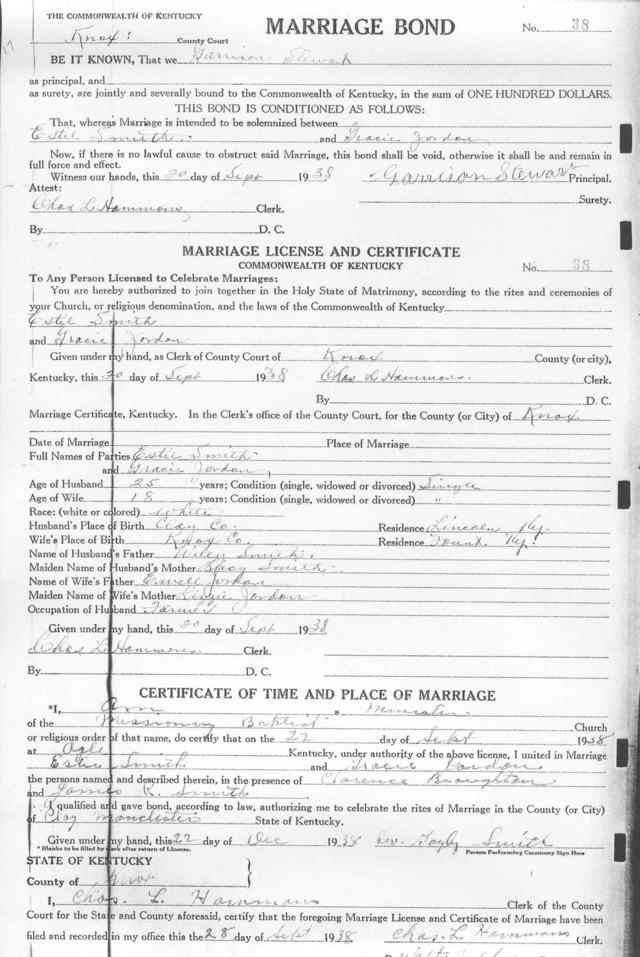 THE COMMONWEALTH OF KENTUCKY
MARRIAGE BOND
No. 38
Knox: County Court
BE IT KNOWN, That we Garrison Stewart
as principal, and
as surety, are jointly and severally bound to the Commonwealth of Kentucky, in the sum of ONE HUNDRED DOLLARS.
THIS BOND IS CONDITIONED AS FOLLOWS:
That, whereas Marriage is intended to be solemnized between
Estil Smith and Gracie Jordon
Now, if there is no lawful cause to obstruct said Marriage, this bond shall be void, otherwise it shall be and remain in
full force and effect.
Witness our hands, this 20 day of Sept 1938 Garrison Stewart Principal.
Attest: Surety.
Chas L Hammons Clerk.
By D. C.
MARRIAGE LICENSE AND CERTIFICATE
COMMONWEALTH OF KENTUCKY
No. 38
To Any Person Licensed to Celebrate Marriages:
You are hereby authorized to join together in the Holy State of Matrimony, according to the rites and ceremonies of
your Church, or religious denomination, and the laws of the Commonwealth of Kentucky
Estil Smith
and Gracie Jordon
Given under my hand, as Clerk of County Court of Knox County (or city),
Kentucky, this 20 day of Sept 1938 Chas L Hammons. Clerk.
By D. C.
Marriage Certificate, Kentucky. In the Clerk's office of the County Court, for the County (or City) of Knox
Date of Marriage Place of Marriage
Full Names of Parties Estil Smith
and Gracie Jordon,
Age of Husband 25 years; Condition (single, widowed or divorced) Single
Age of Wife 18 years; Condition (single, widowed or divorced) "
Race: (white or colored) White
Husband's Place of Birth Clay Co. Residence Lincoln Ky.
Wife's Place of Birth Knox Co. Residence Ky.
Name of Husband's Father Wiley Smith.
Maiden Name of Husband's Mother Smith
Name of Wife's Father Jordon
Maiden Name of Wife's Mother Lizzie Jordon
Occupation of Husband Farmer
Given under my hand, this 20 day of Sept 1938
Chas L Hammons Clerk.
By D. C.
CERTIFICATE OF TIME AND PLACE OF MARRIAGE
*I, Am a Minister
of the Missionary Baptist Church
or religious order of that name, do certify that on the 22 day of Sept 1938
at Ogle Kentucky, under authority of the above license, I united in Marriage
Estil Smith and Gracie Jordon
the persons named and described therein, in the presence of Clarence Broughton
and James R. Smith
I qualified and gave bond, according to law, authorizing me to celebrate the rites of Marriage in the County (or City)
of Clay Manchester State of Kentucky.
Given under my hand, this 22 day of Dec 1938 Rev. Smith
* Blanks to be filled by clerk after return of License. Person Performing Ceremony Sign Here
STATE OF KENTUCKY
County of Knox
I, Chas. L. Hammons Clerk of the County
Court for the State and County aforesaid, certify that the foregoing Marriage License and Certificate of Marriage have been
filed and recorded in my office this the 28 day of Sept 1938. Chas. L. Hammons Clerk.